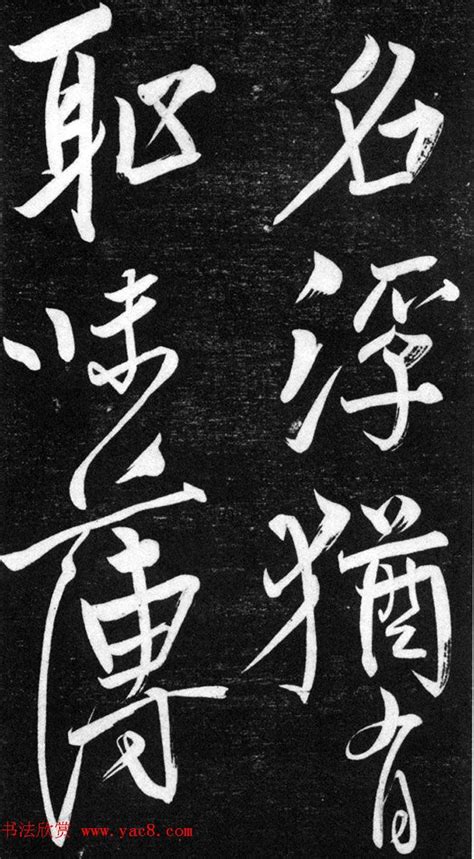 名浮猶有
耻味薄
书法欣赏 www.yac8.com